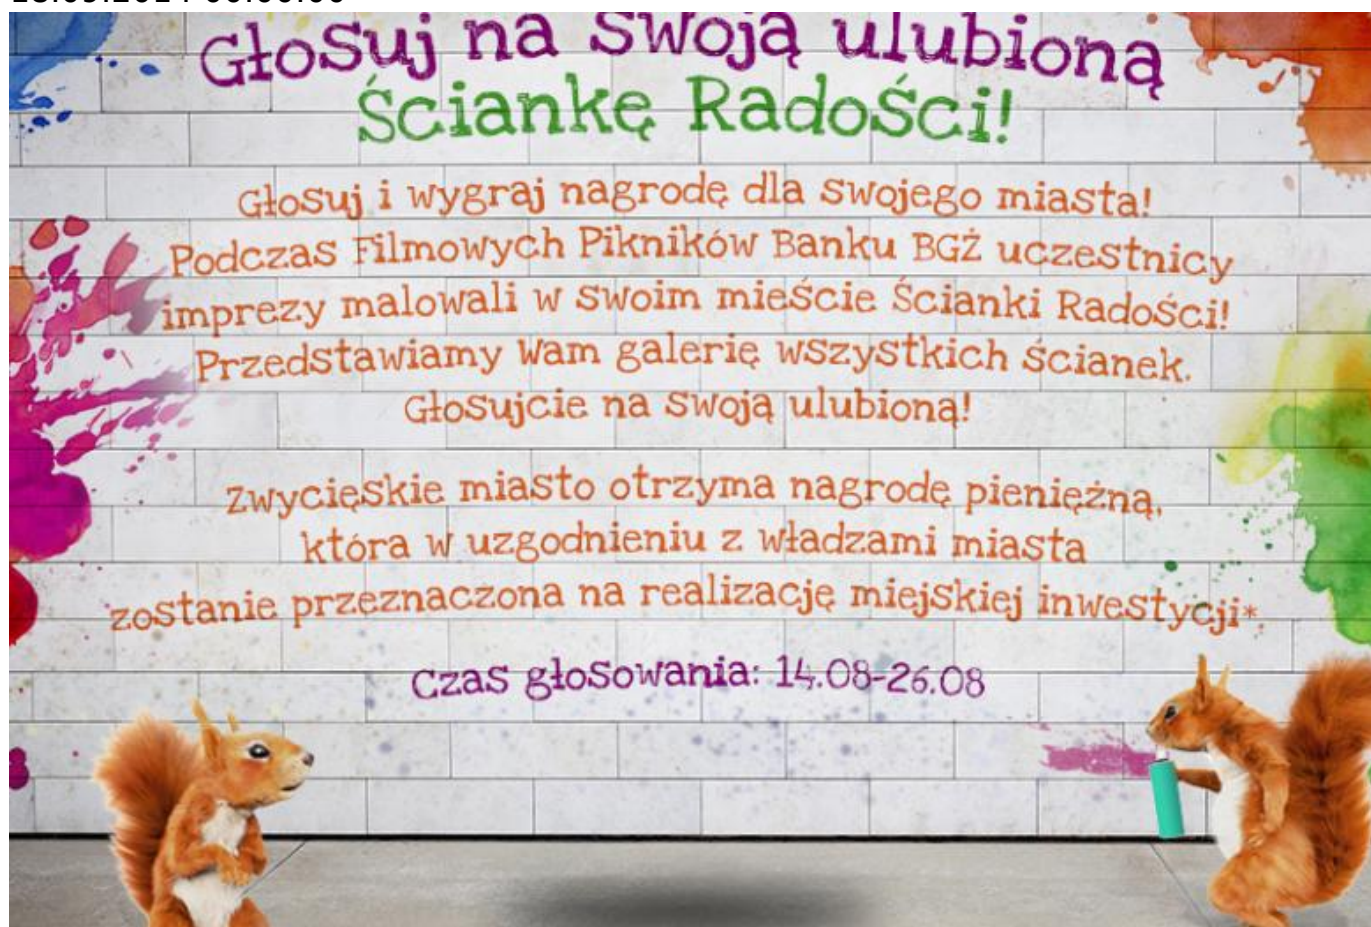 Głosuj na swoją ulubioną
Ściankę Radości!
Głosuj i wygraj nagrodę dla swojego miasta!
Podczas Filmowych Pikników Banku BGŻ uczestnicy
imprezy malowali w swoim mieście Ścianki Radości!
Przedstawiamy Wam galerię wszystkich ścianek.
Głosujcie na swoją ulubioną!
Zwycięskie miasto otrzyma nagrodę pieniężną,
która w uzgodnieniu z władzami miasta
zostanie przeznaczona na realizację miejskiej inwestycji*.
Czas głosowania: 14.08-26.08